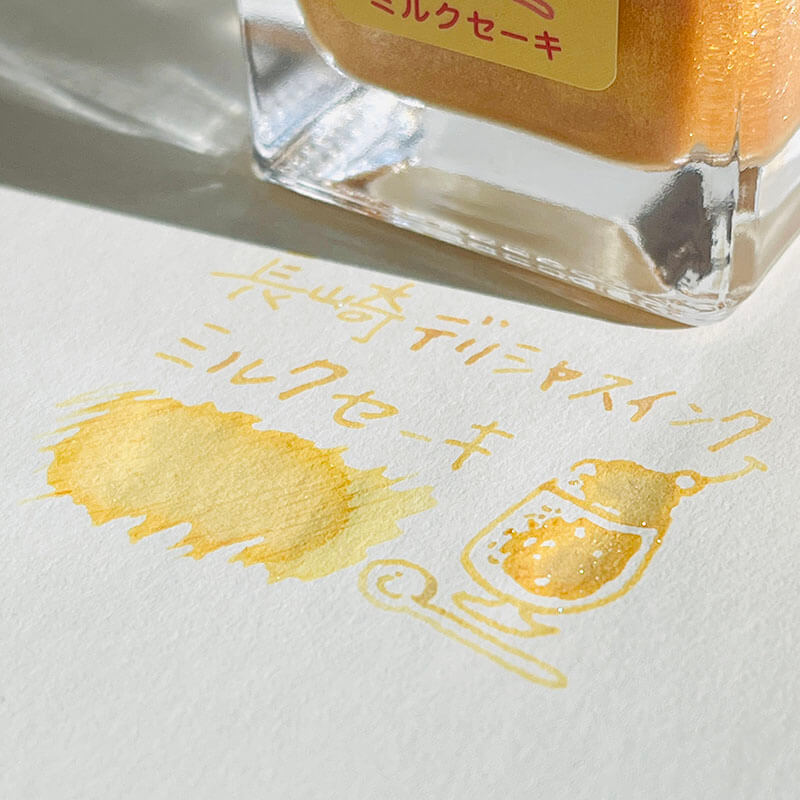 ミルクセーキ
長崎デリシャスインク
ミルクセーキ